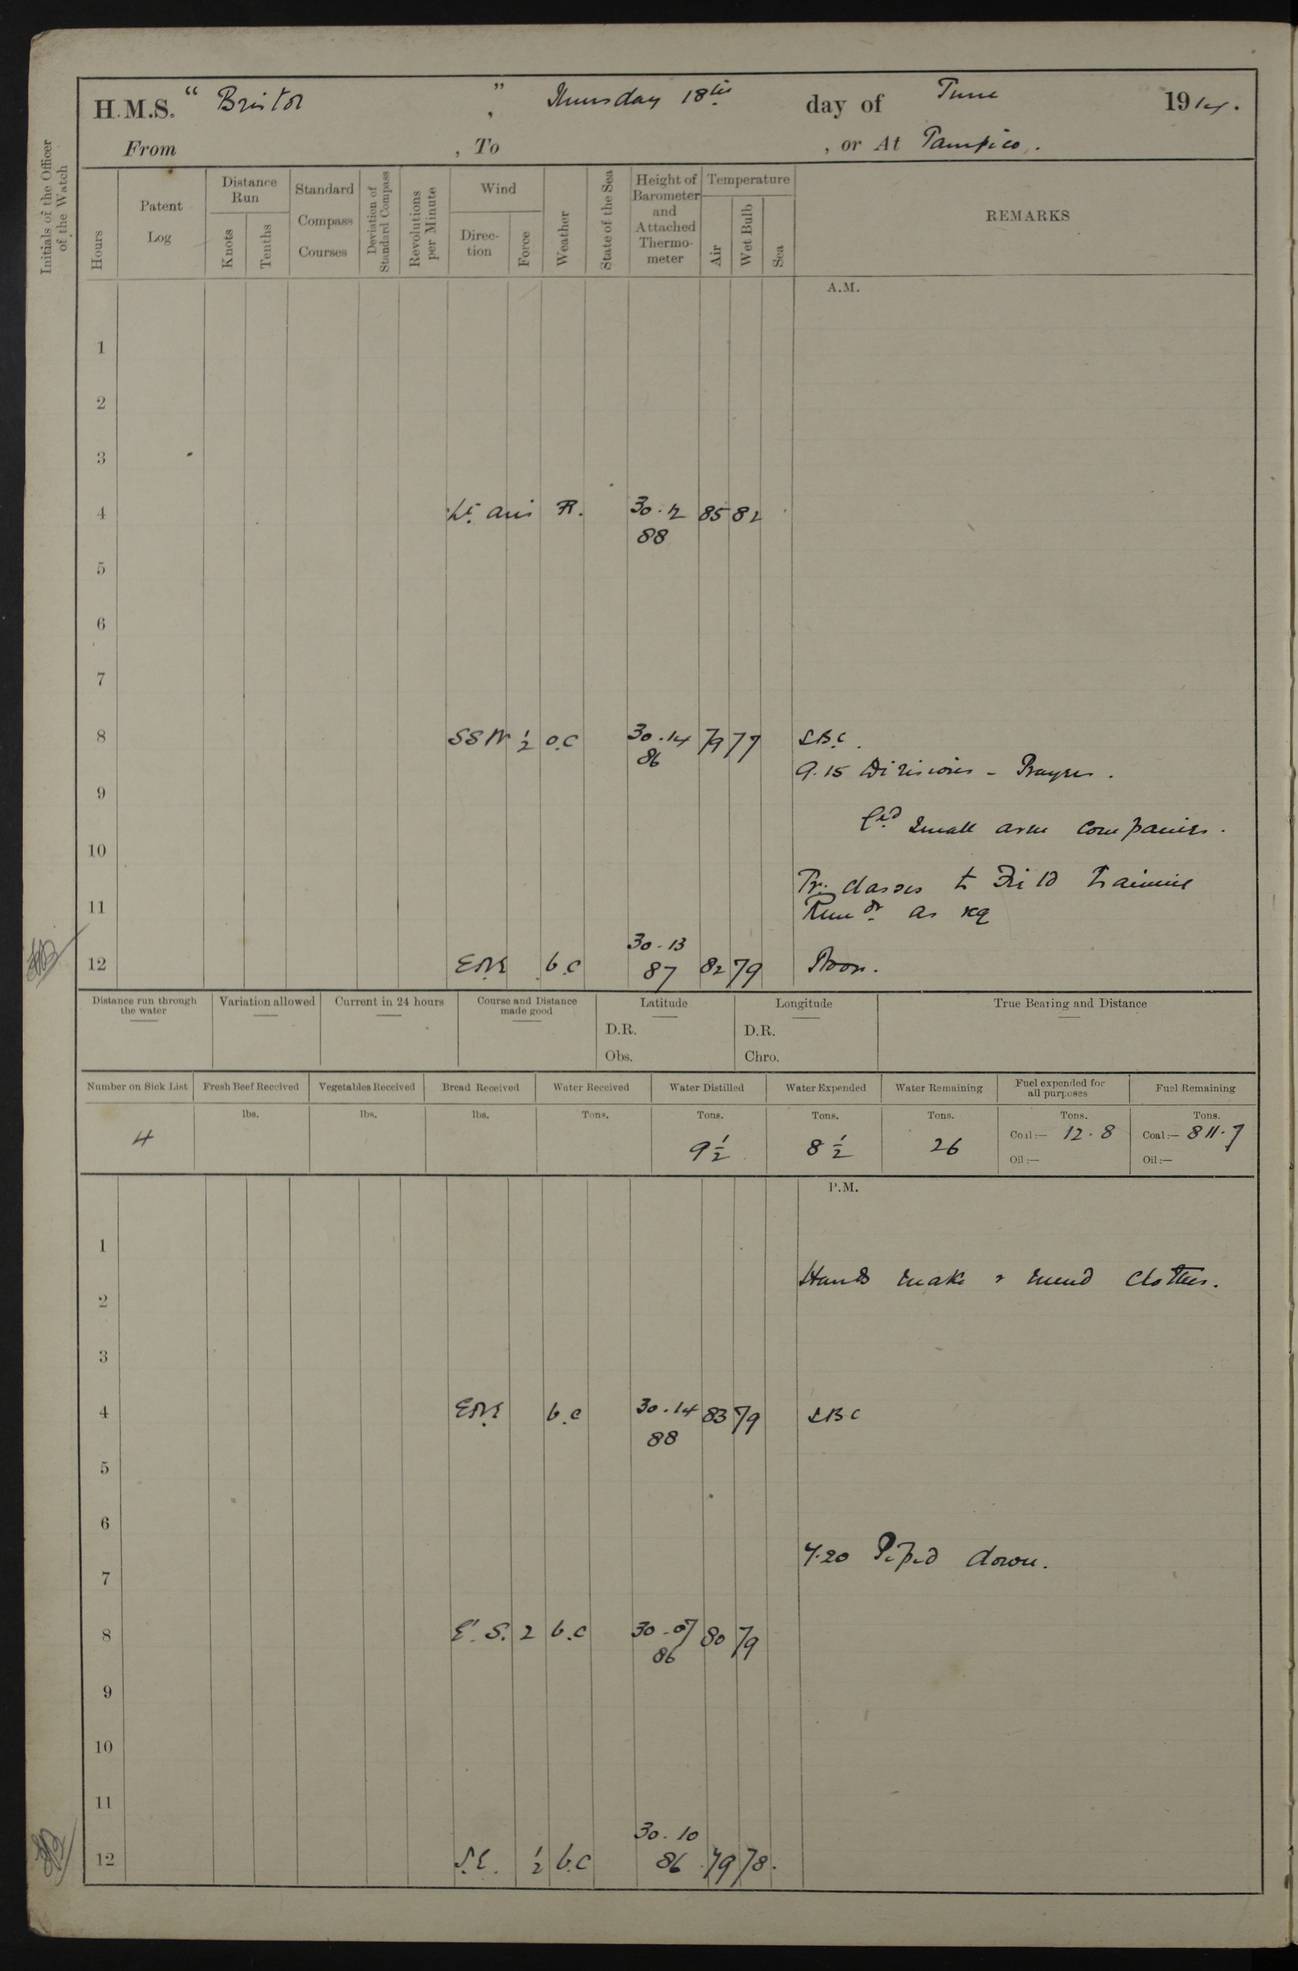 H.M.S. “ Bristol ”, Thursday 18th day of June 1914.
From , To , or At Tampico.
Initials of the Officer of the Watch
Hours
Patent Log
Distance Run
Knots
Tenths
Standard Compass Courses
Deviation of Standard Compass
Revolutions per Minute
Wind
Direc-tion
Force
Weather
State of the Sea
Height of Barometer and Attached Thermo-meter
Temperature
Air
Wet Bulb
Sea
REMARKS
A.M.
1
2
3
4 Lt airs R. 30.2 85 82
88
5
6
7
8 SSW ½ o.c 30.14 79 77 SBC.
86
9.15 Divisions - Prayers.
9
small arm companies.
10
Tr: classes to Field training
11 Remdr as req
30.13
12 ENE b.c 87 82 79 Noon.
Distance run through the water
Variation allowed
Current in 24 hours
Course and Distance made good
Latitude
D.R.
Obs.
Longitude
D.R.
Chro.
True Bearing and Distance
Number on Sick List
Fresh Beef Received
Vegetables Received
Bread Received
Water Received
Water Distilled
Water Expended
Water Remaining
Fuel expended for all purposes
Fuel Remaining
lbs. lbs. lbs. Tons. Tons. Tons. Tons. Tons. Tons.
4 9½ 8½ 26 Coal:— 12.8 Coal:— 811.7
Oil:— Oil:—
P.M.
1
Hands make & mend clothes.
2
3
4 ENE b.c 30.14 83 79 SBC
88
5
6
7.20 Piped down.
7
8 E.S. 2 b.c 30.07 80 79
86
9
10
11
30.10
12 S.E. ½ b.c 86 79 78.